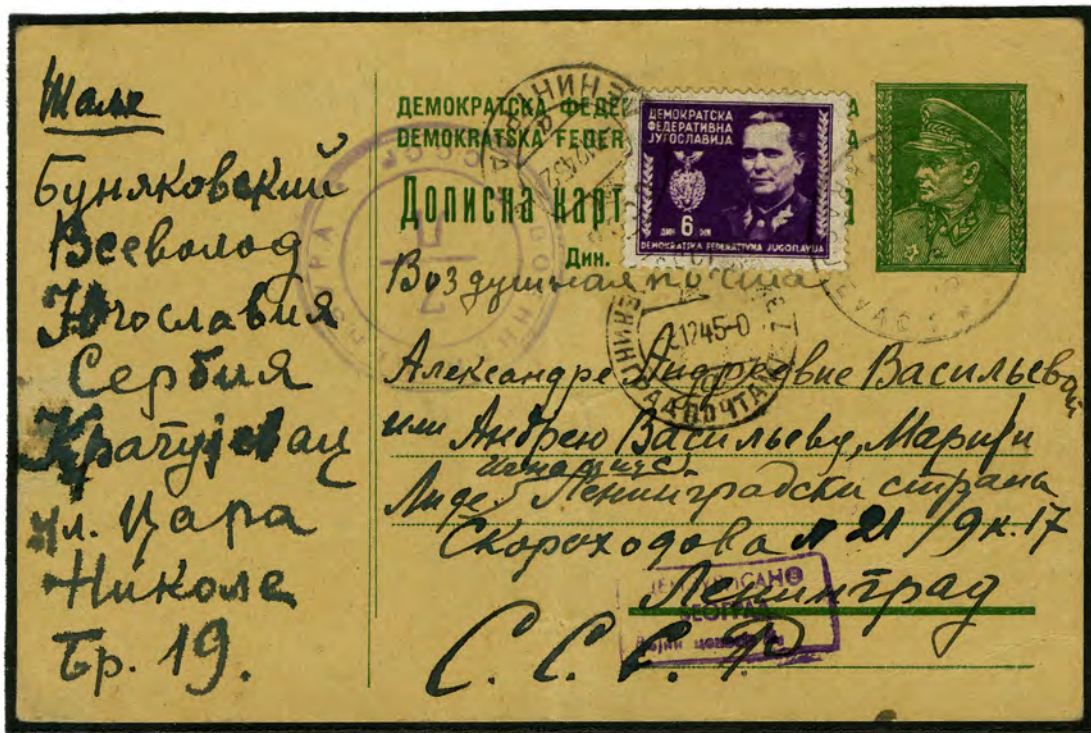 Шаље
Буняковский
Всеволод
Югославия
Сербия
Крагујевац
ул. Цара
Николе
Бр. 19.
ДЕМОКРАТСКА
DEMOKRATSKA
Дописна
Дин.
ДЕМОКРАТСКА
ФЕДЕРАТИВНА
ЈУГОСЛАВИЈА
ДИН 6 DIN
DEMOKRATSKA FEDERATIVNA JUGOSLAVIJA
Воздушная почта
Александре Андреевне Васильевой
или Андрею Васильеву, Марији
Лиде Ленинградски страна
Скороходова № 21/9 к. 17
Ленинград
С. С. С. Р.
БЕОГРАД